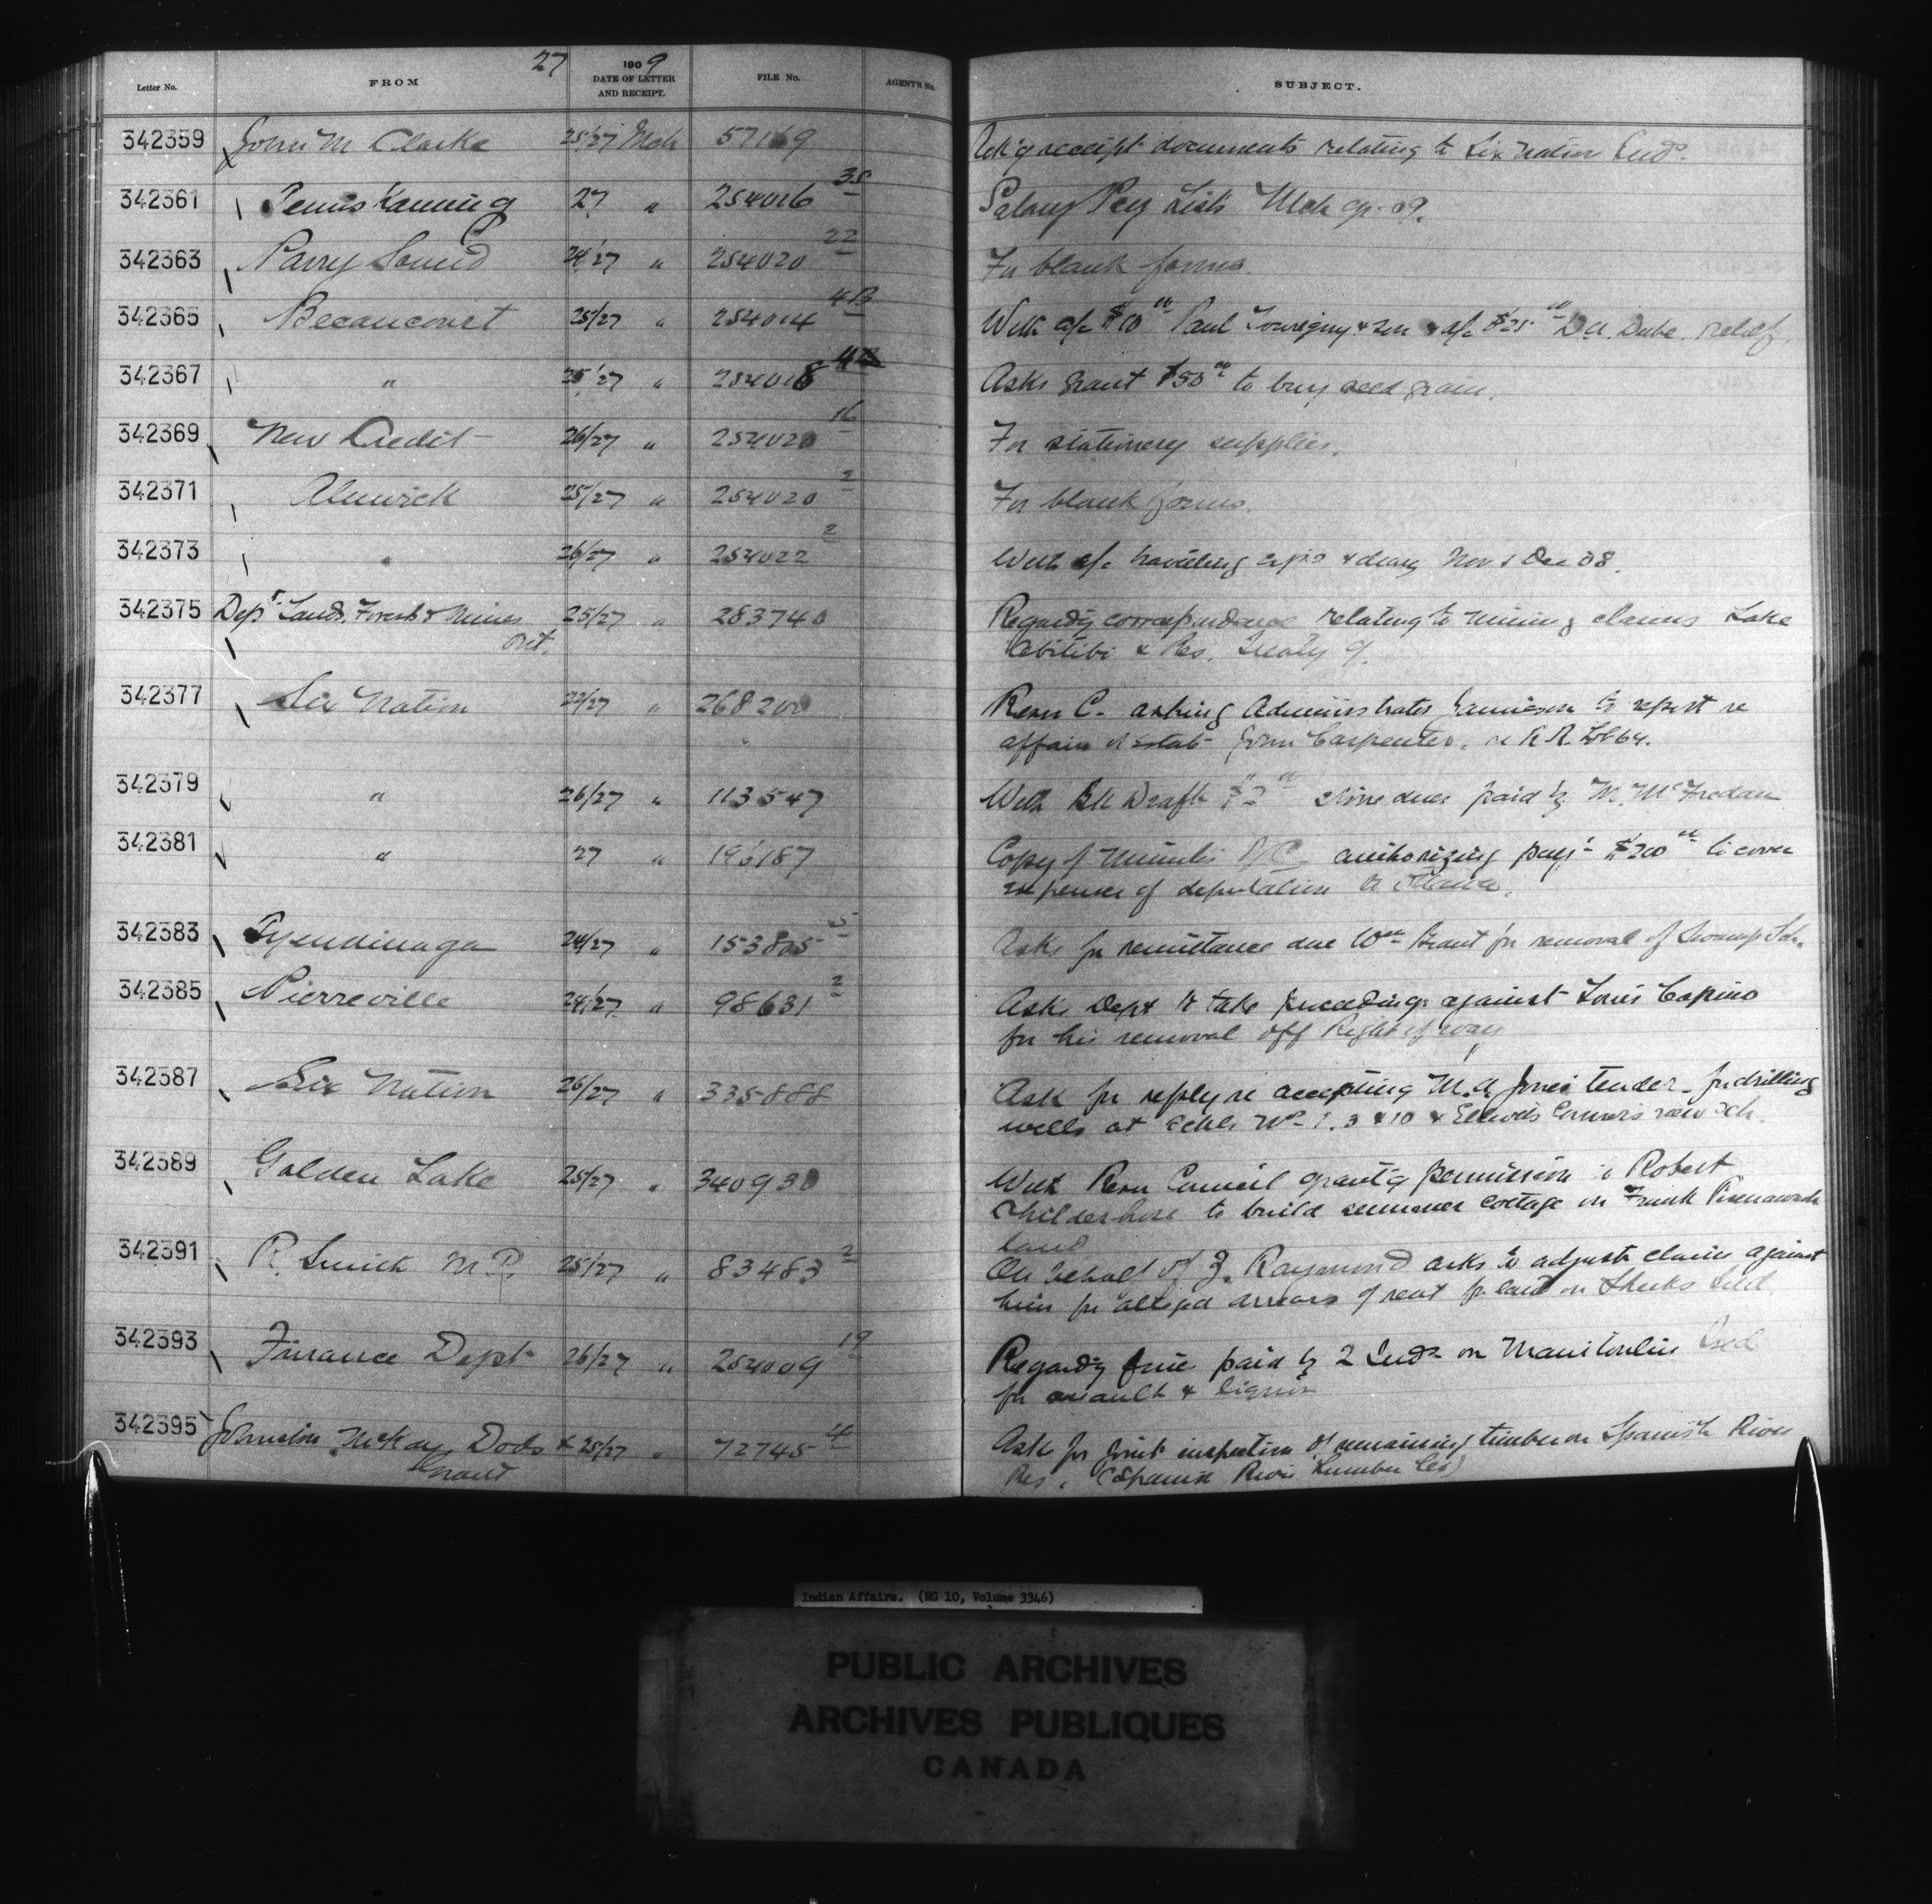 27
Letter No. FROM 1909 DATE OF LETTER AND RECEIPT. FILE No. AGENT'S No. SUBJECT.
342359 John M Clarke 25/27 Mch 57169 Ack'g receipt documents relating to Six Nation Inds.
342361 Temiskaming 27 " 254016 38 Salary Pay List Mch qr. 09.
342363 Parry Sound 24/27 " 254020 22 For blank forms.
342365 Becancourt 25/27 " 254014 4B With a/c $10 00 Paul Tourigny & Son & a/c $25 00 D.A. Dube. relief.
342367 " 25/27 " 254018 Asks grant $50 00 to buy seed grain.
342369 New Credit 26/27 " 254020 16 For stationery supplies.
342371 Alnwick 25/27 " 254020 2 For blank forms.
342373 " 26/27 " 254022 2 With a/c travelling exps & diary Nov & Dec 08.
342375 Dept. Lands, Forests & Mines Ont. 25/27 " 283740 Regard'g correspondence relating to mining claims Lake
Abitibi & Res. Treaty 9.
342377 Six Nation 22/27 " 268200 Resn C. asking Administrator Jamieson to report re
affairs of Estate John Carpenter. Lot 64.
342379 " 26/27 " 113547 With Bk Draft dues paid by
342381 " 27 " Copy of Minutes of C. authorizing pay't $200 00 to cover
expenses of deputation to Ottawa.
342383 Tyendinaga 24/27 " 153805 5 Asks for remittance due Wm Brant for removal of Swamp Sch.
342385 Pierreville 24/27 " 98631 2 Asks Dept to take proceedings against Louis
for his removal off Right of way
342387 Six Nation 26/27 " 335888 Ask for reply re accepting M.A. Jones tender for drilling
wells at Schls No 1, 3 & 10 & Corners new Sch.
342389 Golden Lake 25/27 " 340930 With Resn Council grant'g permission to Robert
Childerhose to build summer cottage on Frank
land
342391 R. Smith M.P. 25/27 " 83483 2 On behalf of J. Raymond asks to adjust claim against
him for alleged arrears of rent for land on Sheeks Isld.
342393 Finance Dept 26/27 " 254009 19 Regard'g fine paid by 2 Inds on Manitoulin Isld
for assault & liquor
342395 Johnston McKay Dods & Grant 25/27 " 72745 4 Ask for joint inspection of remaining timber on Spanish River
Res. (Spanish River Lumber Co)
Indian Affairs. (RG 10, Volume 3346)
PUBLIC ARCHIVES
ARCHIVES PUBLIQUES
CANADA